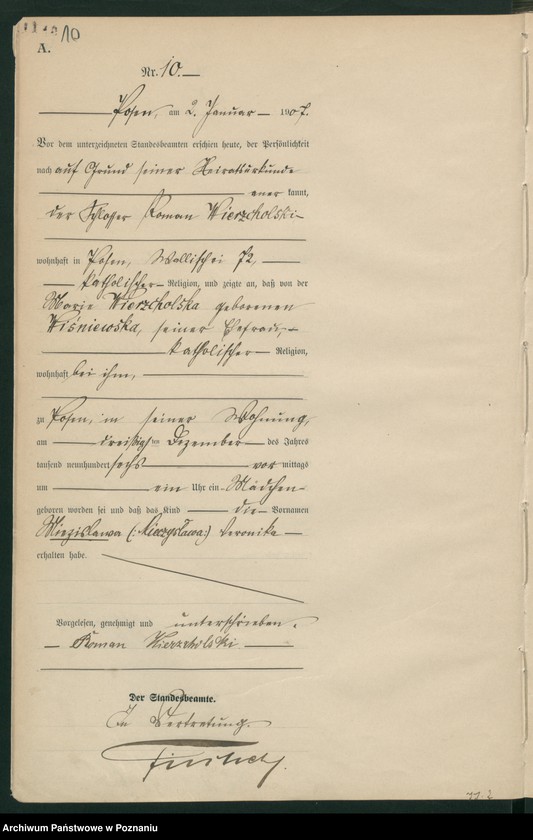 10
A.
Nr. 10.
Posen, am 2. Januar 1907.
Vor dem unterzeichneten Standesbeamten erschien heute, der Persönlichkeit
nach auf Grund seiner Heiratsurkunde
aner kannt,
der Schlosser Roman Wierzcholski
wohnhaft in Posen, Wallischei 72,
katholischer Religion, und zeigte an, daß von der
Marie Wierzcholska geborenen
Wiśniewska, seiner Ehefrau,
katholischer Religion,
wohnhaft bei ihm,
zu Posen, in seiner Wohnung,
am dreißigsten Dezember des Jahres
tausend neunhundert sechs vor mittags
um ein Uhr ein Mädchen
geboren worden sei und daß das Kind die Vornamen
Miezislawa (: Mieczysława :) Veronika
erhalten habe.
Vorgelesen, genehmigt und unterschrieben.
Roman Wierzcholski
Der Standesbeamte.
In Vertretung.
Archiwum Państwowe w Poznaniu